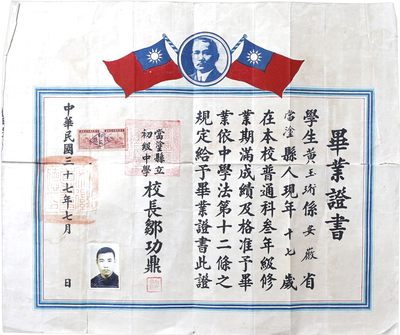 畢業證書
學生黃玉珩係安徽省
當塗縣人現年十七歲
在本校普通科叁年級修
業期滿成績及格准予畢
業依中學法第十二條之
規定給予畢業證書此證
當塗縣立
初級中學
校長鄒功鼎
中華民國三十七年七月 日